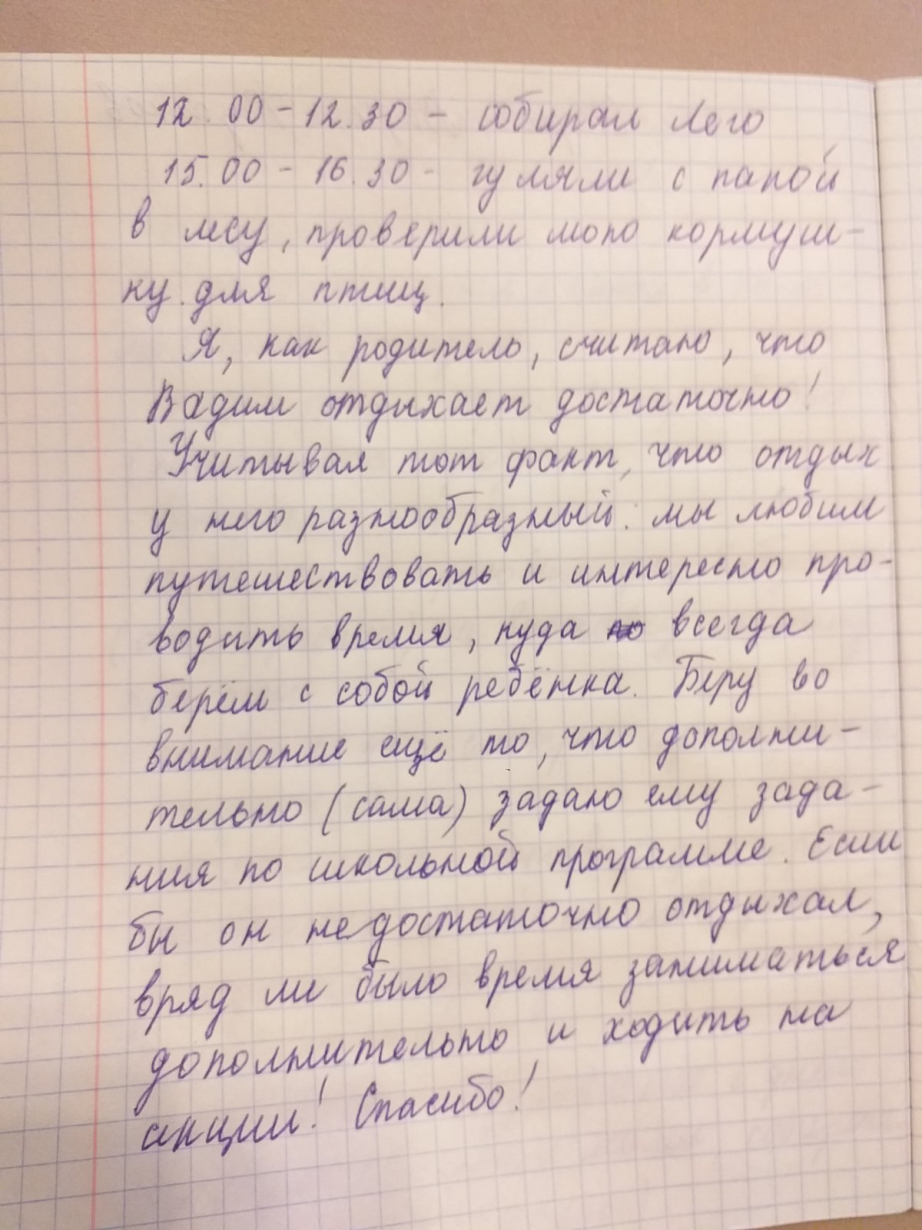 12.00 - 12.30 - собирал Лего
15.00 - 16.30 - гуляли с папой
в лесу, проверили мою кормуш-
ку для птиц.
Я, как родитель, считаю, что
Вадим отдыхает достаточно!
Учитывая тот факт, что отдых
у него разнообразный: мы любим
путешествовать и интересно про-
водить время, куда всегда
берём с собой ребёнка. Беру во
внимание ещё то, что дополни-
тельно (сама) задаю ему зада-
ния по школьной программе. Если
бы он недостаточно отдыхал,
вряд ли было время заниматься
дополнительно и ходить на
акции! Спасибо!